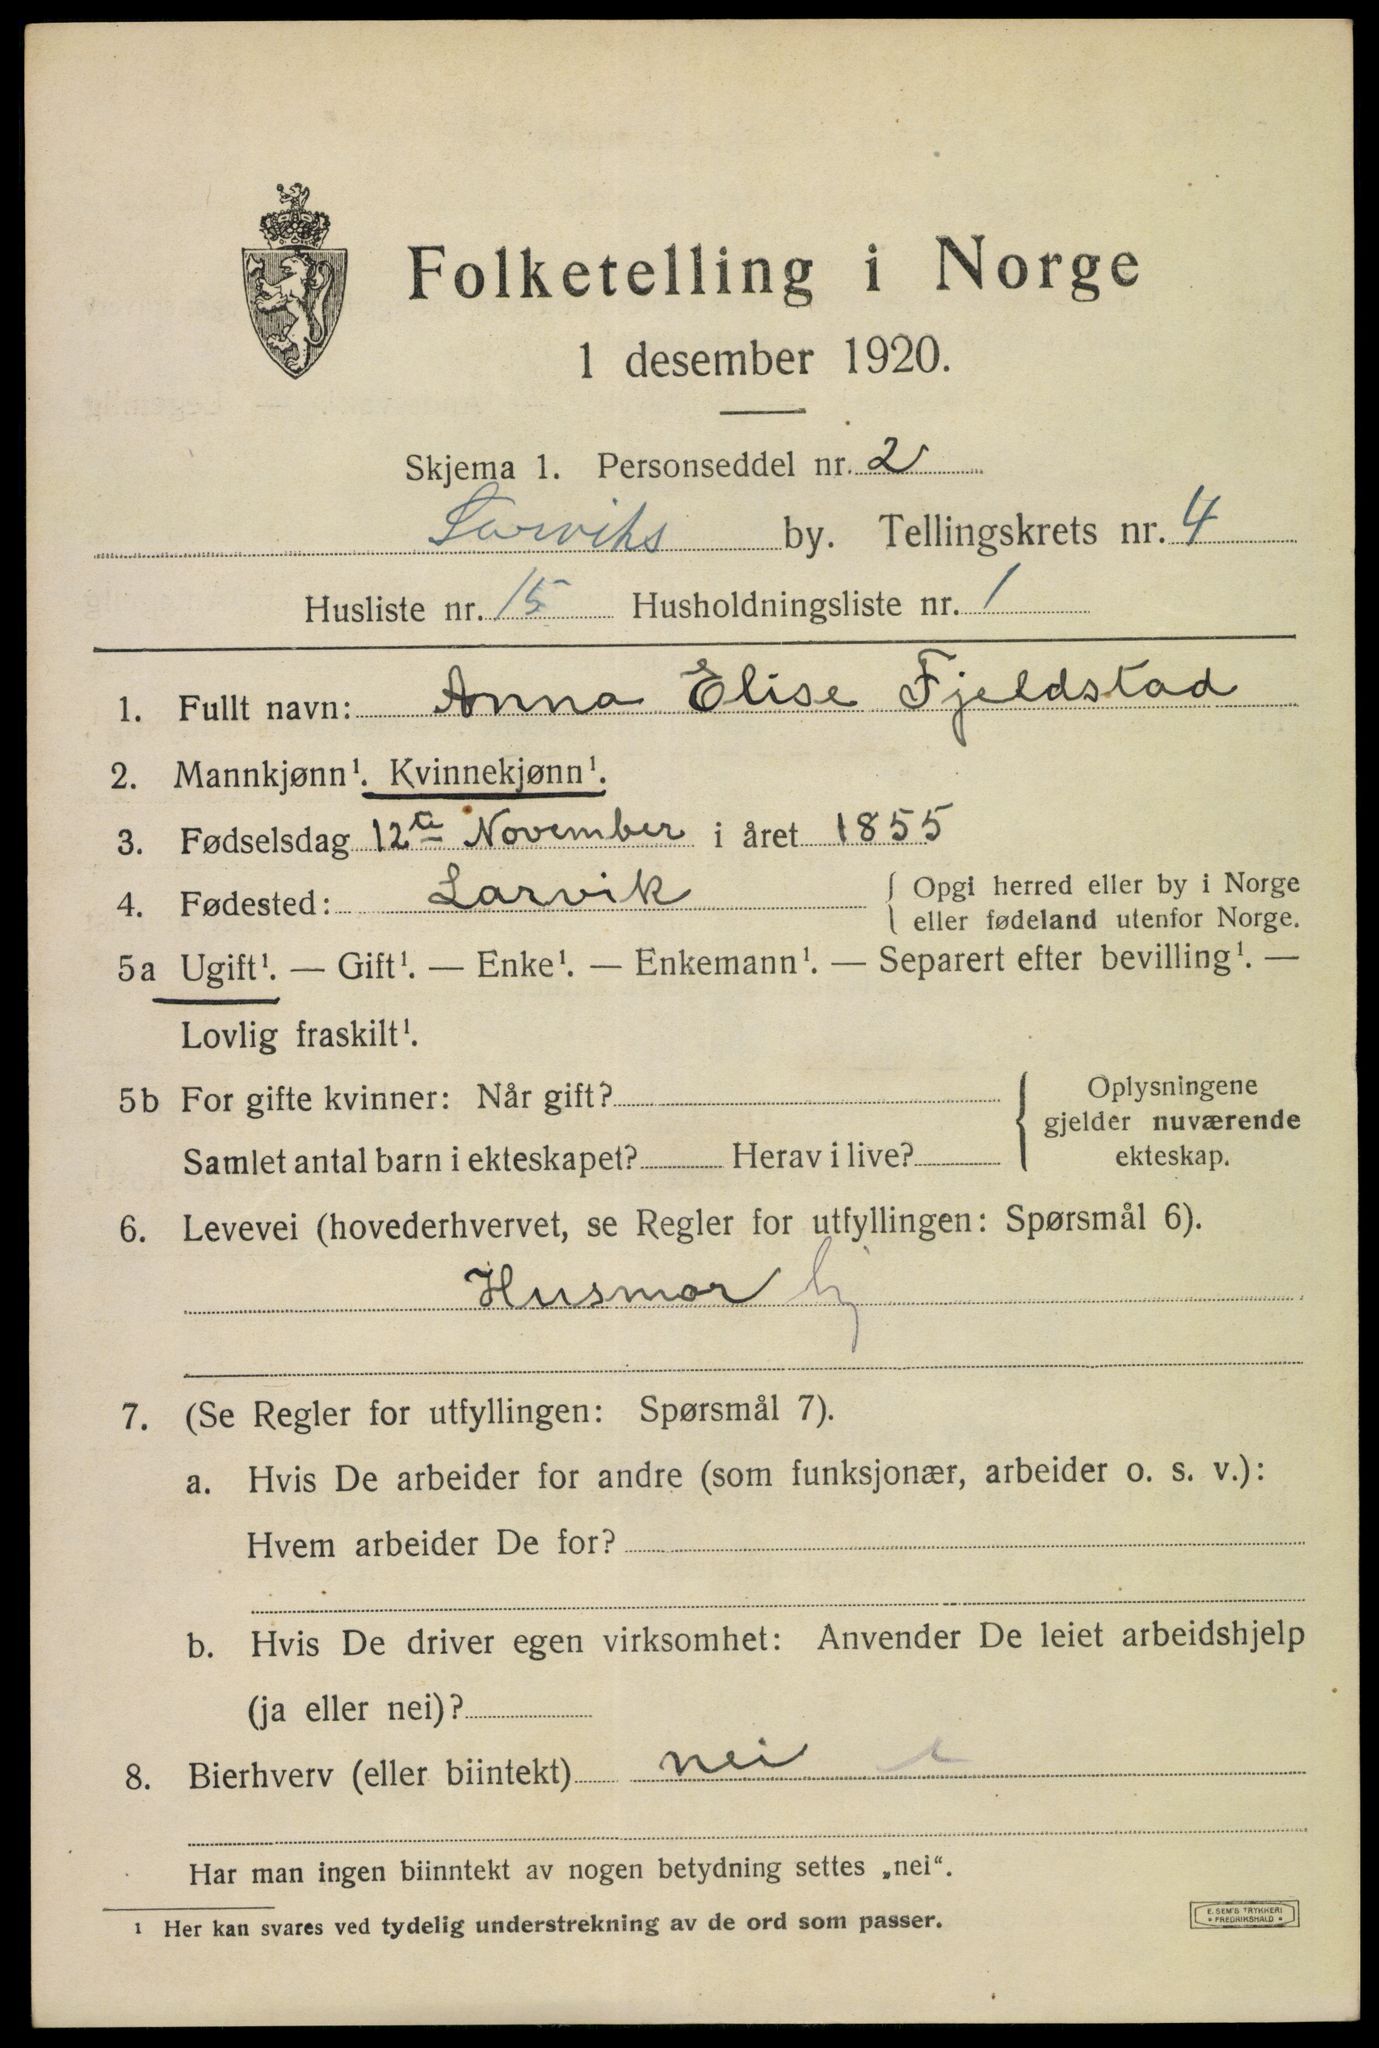 Folketelling i Norge
1 desember 1920.
Skjema 1. Personseddel nr. 2
Larviks by. Tellingskrets nr. 4
Husliste nr. 15 Husholdningsliste nr. 1
1. Fullt navn: Anna Elise Fjeldstad
2. Mannkjønn¹. Kvinnekjønn¹.
3. Fødselsdag 12te November i året 1855
4. Fødested: Larvik { Opgi herred eller by i Norge
eller fødeland utenfor Norge.
5a Ugift¹. — Gift¹. — Enke¹. — Enkemann¹. — Separert efter bevilling¹. —
Lovlig fraskilt¹.
5b For gifte kvinner: Når gift?
Samlet antal barn i ekteskapet? Herav i live?
Oplysningene
gjelder nuværende
ekteskap.
6. Levevei (hovederhvervet, se Regler for utfyllingen: Spørsmål 6).
Husmor
7. (Se Regler for utfyllingen: Spørsmål 7).
a. Hvis De arbeider for andre (som funksjonær, arbeider o. s. v.):
Hvem arbeider De for?
b. Hvis De driver egen virksomhet: Anvender De leiet arbeidshjelp
(ja eller nei)?
8. Bierhverv (eller biintekt) nei
Har man ingen biinntekt av nogen betydning settes „nei“.
1 Her kan svares ved tydelig understrekning av de ord som passer.
E. SEM'S TRYKKERI
* FREDRIKSHALD *